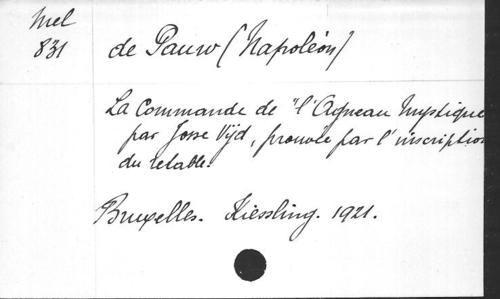 Mel
831
de Pauw (Napoléon)
La commande de "l'Agneau Mystique
par Josse Vijd, prouvée par l'inscription
du retable.
Bruxelles. Kiessling. 1921.